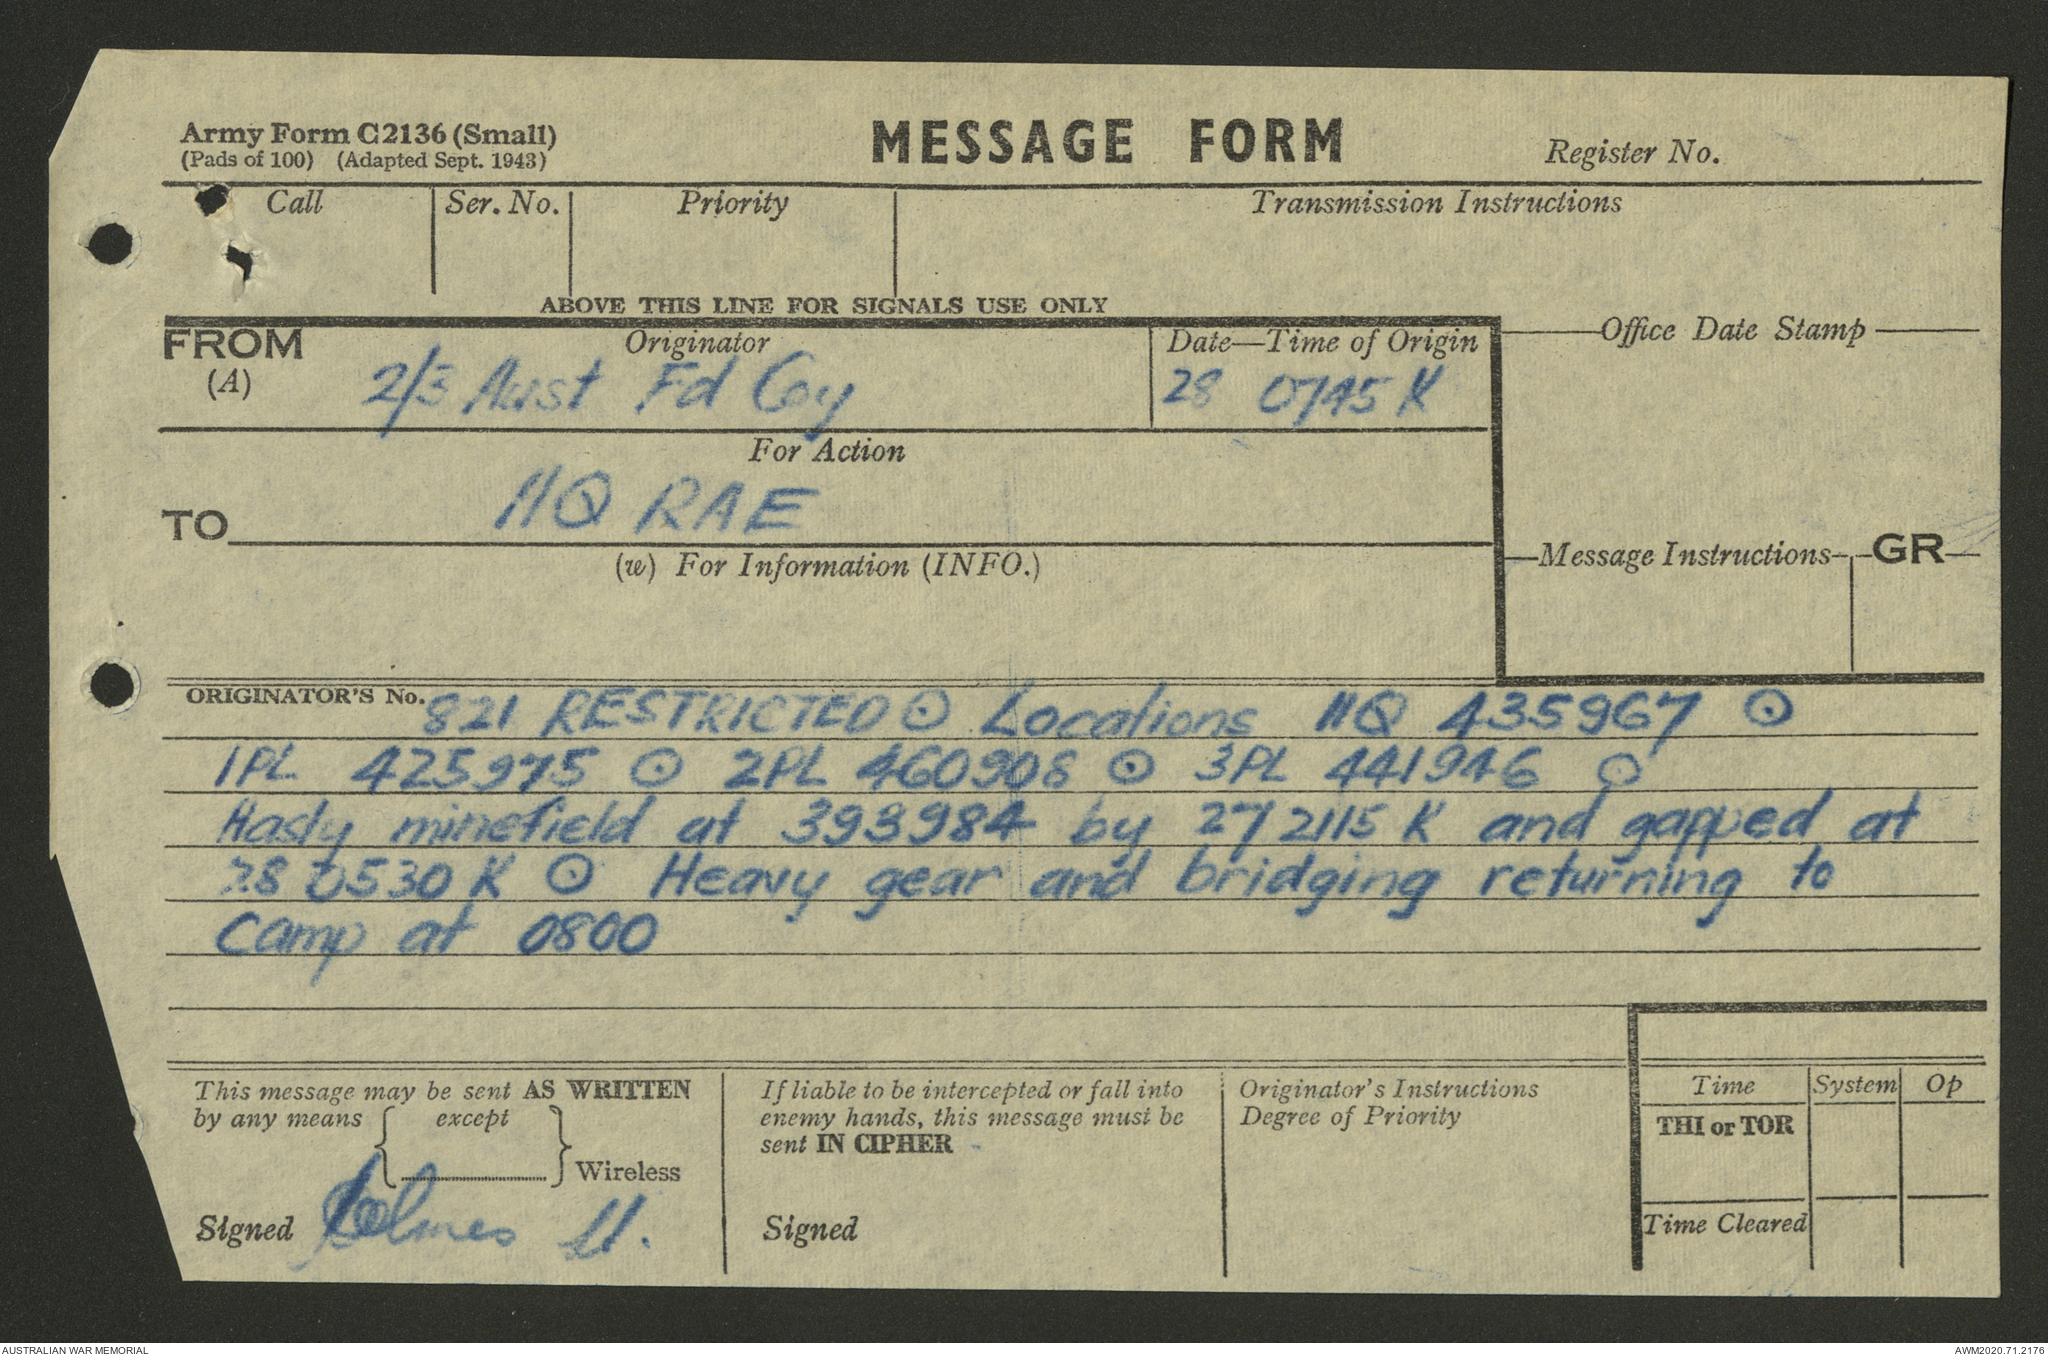 Army Form C2136 (Small)
(Pads of 100) (Adapted Sept. 1943)
MESSAGE FORM
Register No.
Call
Ser. No.
Priority
Transmission Instructions
ABOVE THIS LINE FOR SIGNALS USE ONLY
FROM
(A)
Originator
2/3 Aust Fd Coy
Date—Time of Origin
28 0745 K
Office Date Stamp
For Action
TO
HQ RAE
(w) For Information (INFO.)
Message Instructions
GR
ORIGINATOR'S No. 821 RESTRICTED ⊙ Locations HQ 435967 ⊙
1PL 425975 ⊙ 2PL 460908 ⊙ 3PL 441946 ⊙
Hasty minefield at 393984 by 272115 K and gapped at
28 0530 K ⊙ Heavy gear and bridging returning to
camp at 0800
This message may be sent AS WRITTEN
by any means { except
} Wireless
Signed Lt.
If liable to be intercepted or fall into
enemy hands, this message must be
sent IN CIPHER
Signed
Originator's Instructions
Degree of Priority
Time
System
Op
THI or TOR
Time Cleared
AUSTRALIAN WAR MEMORIAL
AWM2020.71.2176